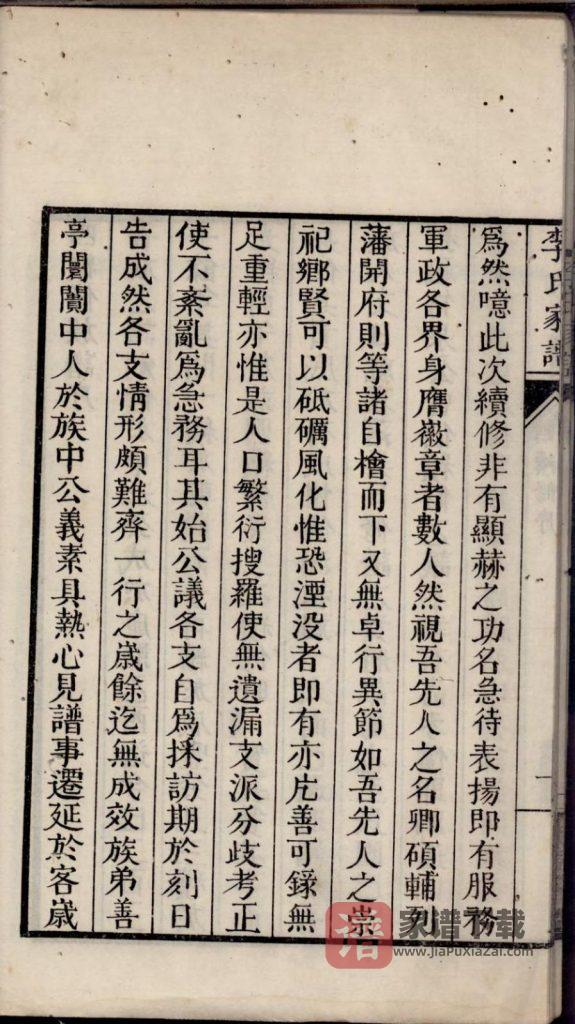 李氏家譜
二
爲然噫此次續修非有顯赫之功名急待表揚即有服務
軍政各界身膺徽章者數人然視吾先人之名卿碩輔列
藩開府則等諸自檜而下又無卓行異節如吾先人之崇
祀鄉賢可以砥礪風化惟恐湮没者即有亦片善可錄無
足重輕亦惟是人口繁衍搜羅使無遺漏支派分歧考正
使不紊亂爲急務耳其始公議各支自爲採訪期於刻日
告成然各支情形頗難齊一行之歲餘迄無成效族弟善
亭闤闠中人於族中公義素具熱心見譜事遷延於客歲
譜
家谱下载
www.jiaPuxiazai.com